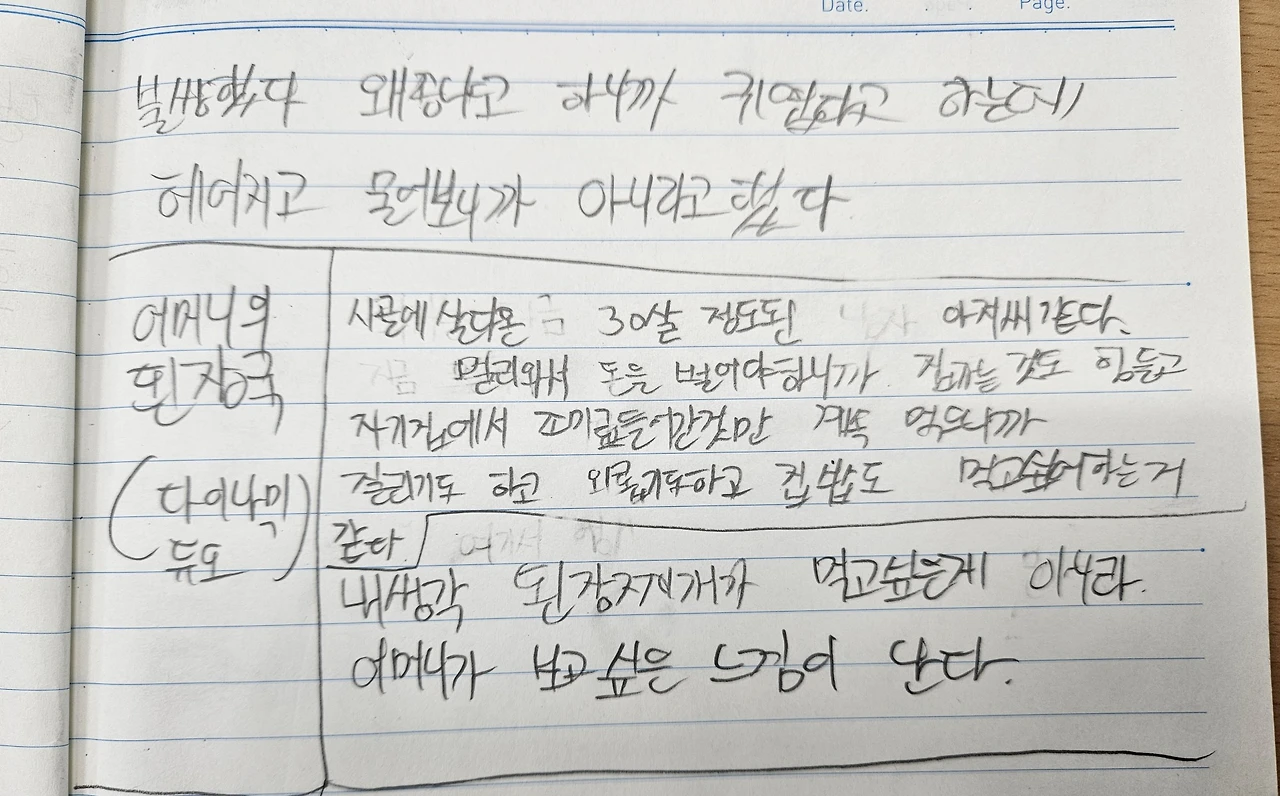 Date. Page.
불쌍했다 왜좋냐고 하니까 귀엽다고 하는데
헤어지고 물어보니까 아니라고했다
어머니의
된장국
(다이나믹
듀오)
시골에살다온 30살 정도된 아저씨같다.
멀리와서 돈을 벌어야하니까 집가는 것도 힘들고
자기집에서 조미료들어간것만 계속 먹으니까
질리기도 하고 외롭기도하고 집밥도 먹고싶어하는거
같다.
내생각 된장찌개가 먹고싶은게 아니라.
어머니가 보고싶은 느낌이 난다.